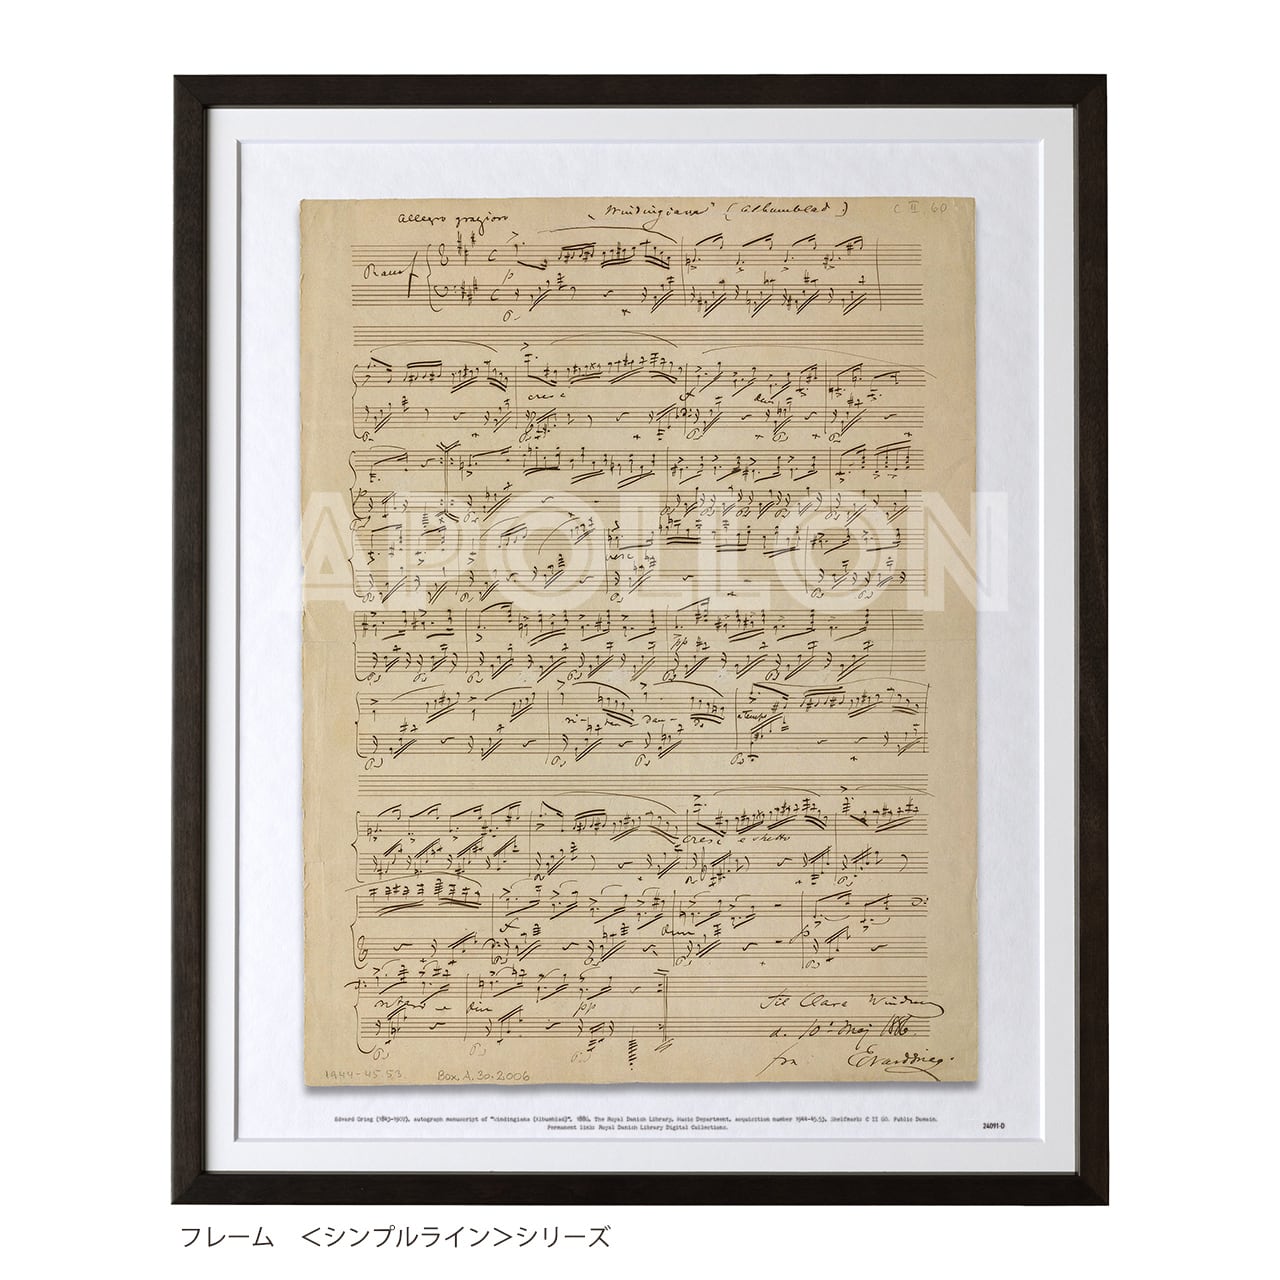 Allegro grazioso „Windingiana" (Albumblad.) C II, 60
p
cresc
dim
APOLLON
cresc
pp
ri- ten- dan- do a tempo
cresc e stretto
dim p
ritard e dim pp
Til Clara Winding
d. 10de Maj 1886.
fra Edvard Grieg.
1944-45.53. Box A.30.2006
Edvard Grieg (1843-1907), autograph manuscript of "Windingiana (Albumblad)", 1886, The Royal Danish Library, Music Department, acquisition number 1944-45.53, Shelfmark: C II 60. Public Domain.
Permanent link: Royal Danish Library Digital Collections.
24091-D
フレーム ＜シンプルライン＞シリーズ